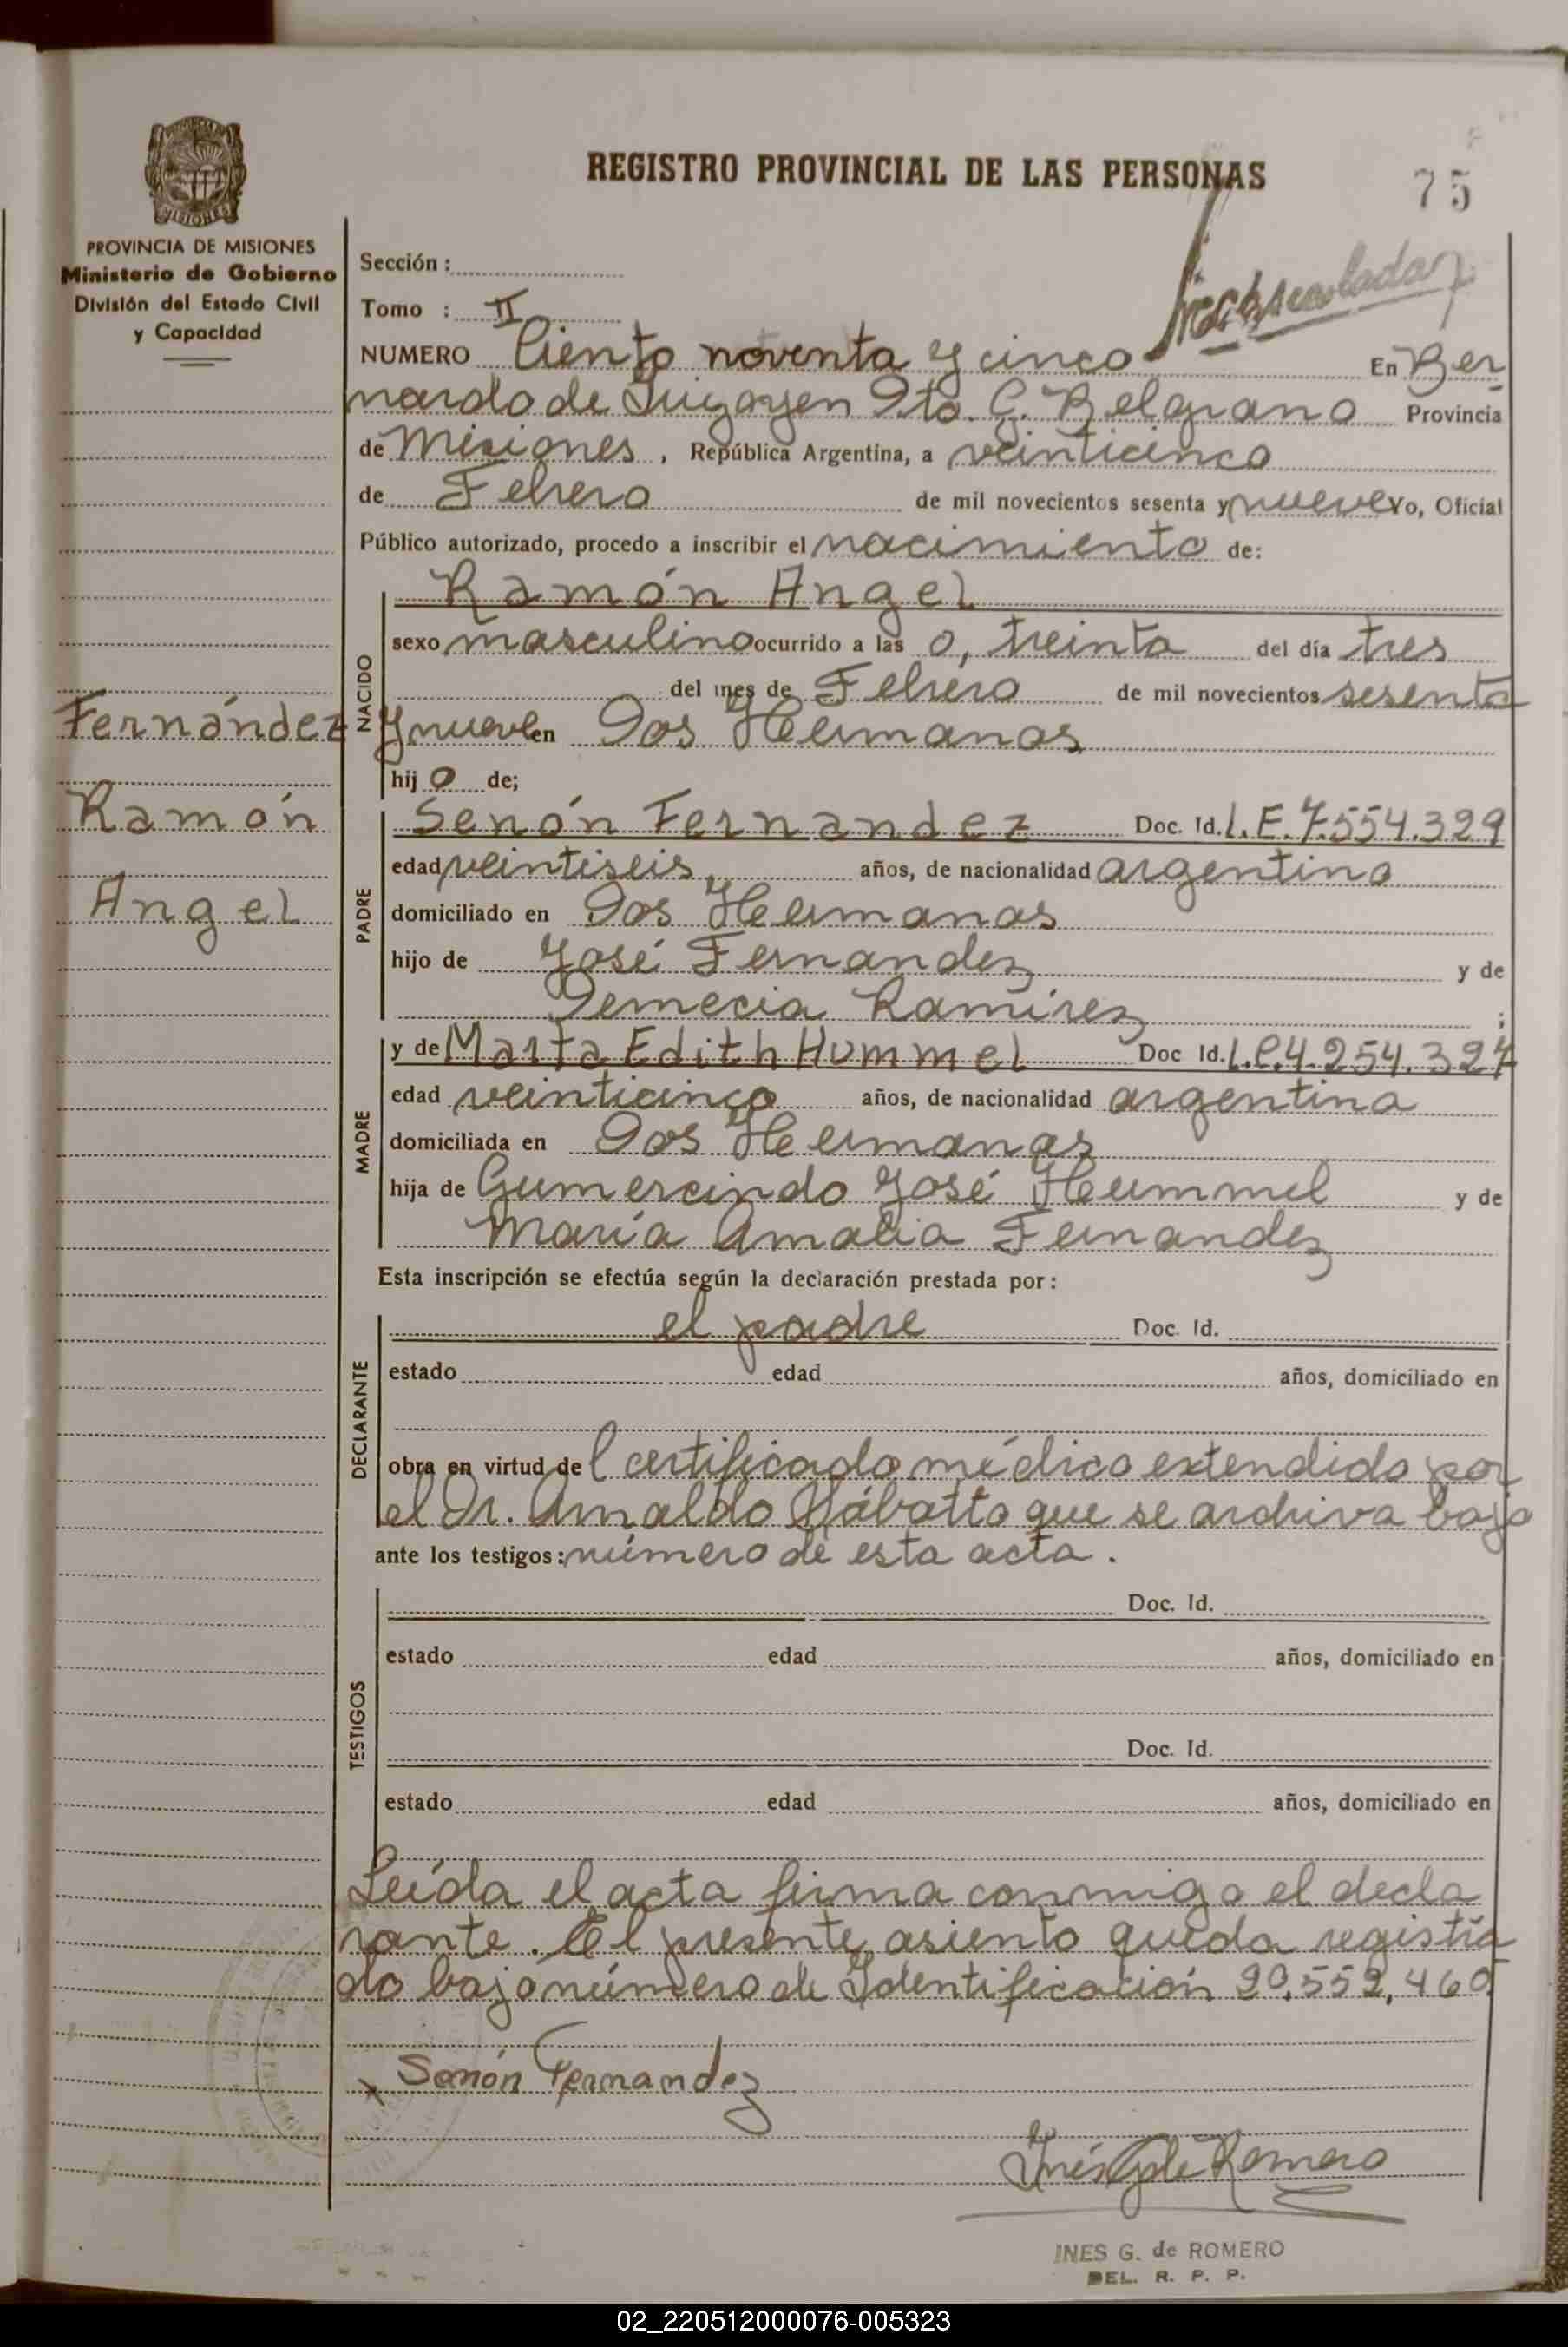 REGISTRO PROVINCIAL DE LAS PERSONAS
75
PROVINCIA DE MISIONES
Ministerio de Gobierno
División del Estado Civil
y Capacidad
Sección:
Tomo : II
NUMERO Ciento noventa y cinco En Ber
nardo de Irigoyen Dto. G. Belgrano Provincia
de Misiones, República Argentina, a veinticinco
de Febrero de mil novecientos sesenta y nueve Yo, Oficial
Público autorizado, procedo a inscribir el nacimiento de:
NACIDO
Ramón Angel
sexo masculino ocurrido a las 0, treinta del día tres
del mes de Febrero de mil novecientos sesenta
y nueve en Dos Hermanas
hijo de;
Fernández
Ramón
Angel
PADRE
Senón Fernandez Doc. Id. L.E. 7.554.329
edad veintiseis, años, de nacionalidad argentino
domiciliado en Dos Hermanas
hijo de José Fernandez y de
Demecia Ramírez ;
MADRE
y de Marta Edith Hummel Doc Id. L.C. 4.254.327
edad veinticinco años, de nacionalidad argentina
domiciliada en Dos Hermanas
hija de Gumercindo José Hummel y de
María Amalia Fernandez
Esta inscripción se efectúa según la declaración prestada por:
DECLARANTE
el padre Doc. Id.
estado edad años, domiciliado en
obra en virtud del certificado médico extendido por
el Dr. Arnaldo que se archiva bajo
ante los testigos: número de esta acta.
TESTIGOS
Doc. Id.
estado edad años, domiciliado en
Doc. Id.
estado edad años, domiciliado en
Leída el acta firma conmigo el decla
rante. El presente asiento queda registra
do bajo número de Identificación 20,552,460
Senón Fernandez
Inés G de Romero
INES G. de ROMERO
DEL. R. P. P.
02_220512000076-005323